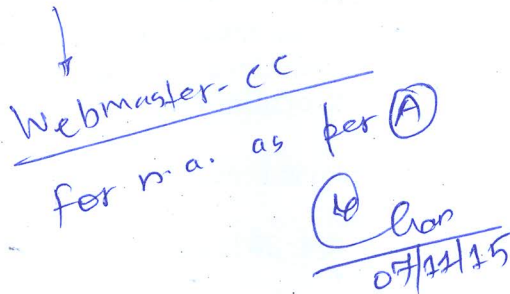 Webmaster-CC
for n.a. as per A
07/11/15